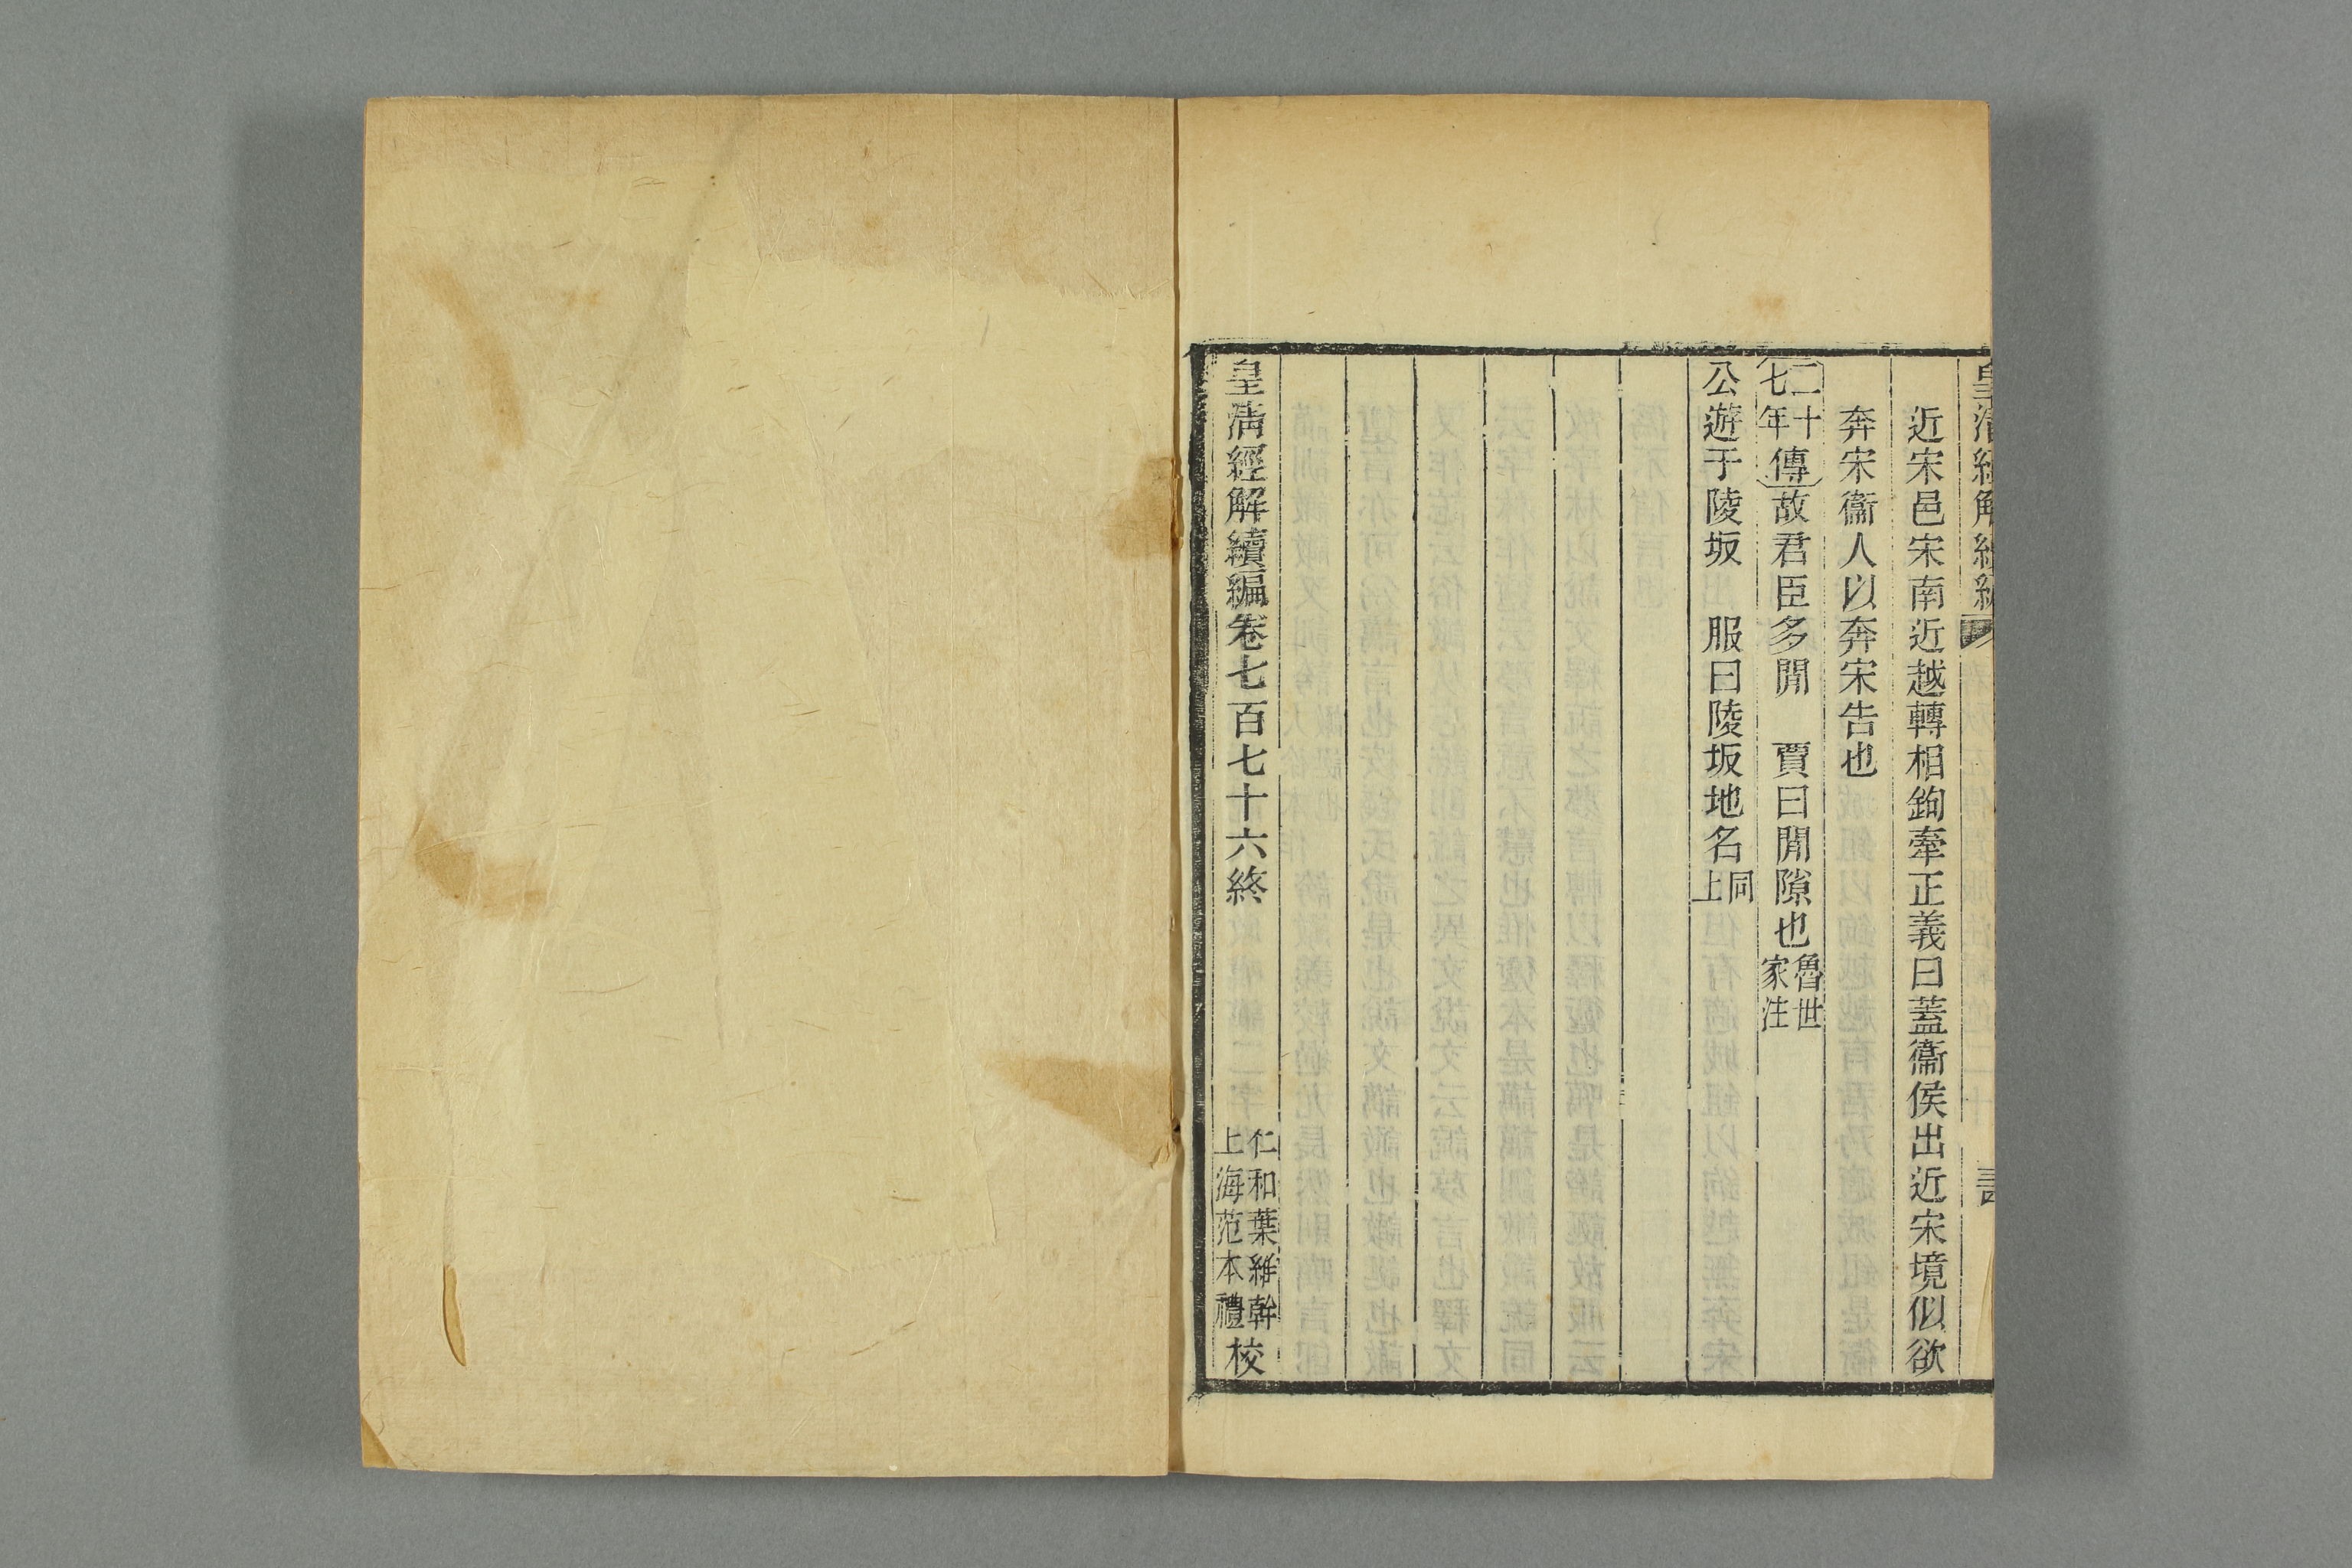 近宋邑宋南近越轉相鉤牽正義曰蓋衞侯出近宋境似欲
奔宋衞人以奔宋告也
二十七年傳故君臣多閒　賈曰閒隙也魯世家注
公遊于陵坂　服曰陵坂地名同上
皇淸經解續編卷七百七十六終　仁和葉維幹上海范本禮校